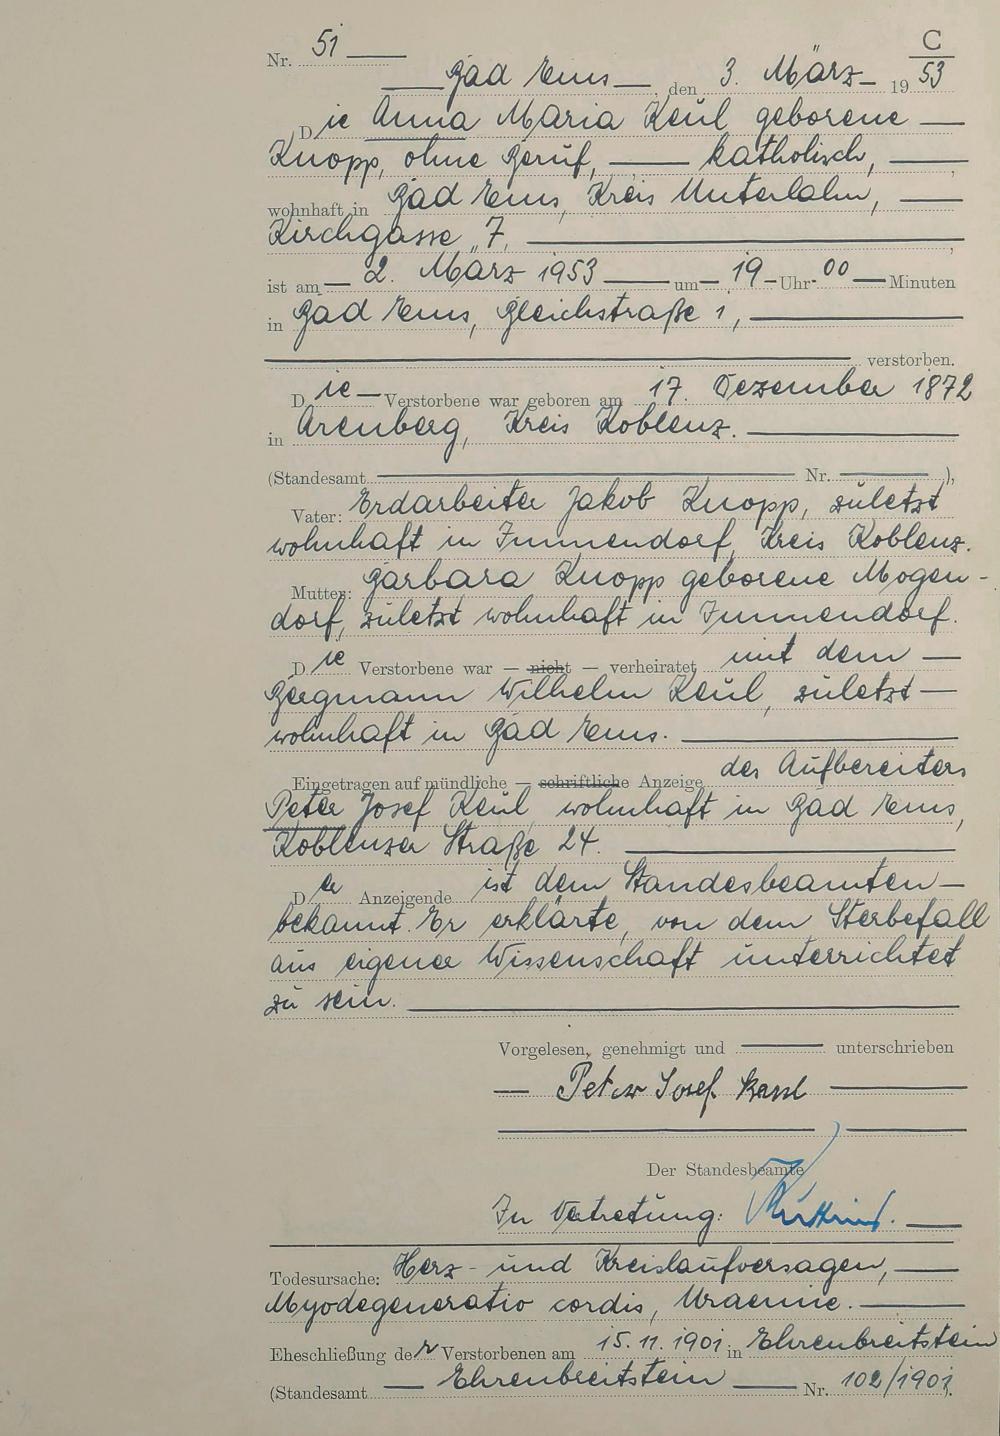 C
Nr. 51
Bad Ems, den 3. März 1953
Die Anna Maria Keul geborene
Knopp, ohne Beruf, katholisch,
wohnhaft in Bad Ems, Kreis Unterlahn,
Kirchgasse 7,
ist am 2. März 1953 um 19 Uhr 00 Minuten
in Bad Ems, Bleichstraße 1,
verstorben.
Die Verstorbene war geboren am 17. Dezember 1872
in Arenberg, Kreis Koblenz.
(Standesamt Nr. ),
Vater: Erdarbeiter Jakob Knopp, zuletzt
wohnhaft in Immendorf, Kreis Koblenz.
Mutter: Barbara Knopp geborene Mogen-
dorf, zuletzt wohnhaft in Immendorf.
Die Verstorbene war — nicht — verheiratet mit dem
Bergmann Wilhelm Keul, zuletzt
wohnhaft in Bad Ems.
Eingetragen auf mündliche — schriftliche Anzeige des Aufbereiters
Peter Josef Keul, wohnhaft in Bad Ems,
Koblenzer Straße 24.
Der Anzeigende ist dem Standesbeamten
bekannt. Er erklärte, von dem Sterbefall
aus eigener Wissenschaft unterrichtet
zu sein.
Vorgelesen, genehmigt und unterschrieben
Peter Josef Keul
Der Standesbeamte
In Vertretung:
Todesursache: Herz- und Kreislaufversagen,
Myodegeneratio cordis, Uraemie.
Eheschließung der Verstorbenen am 15. 11. 1901 in Ehrenbreitstein
(Standesamt Ehrenbreitstein Nr. 102/1901.